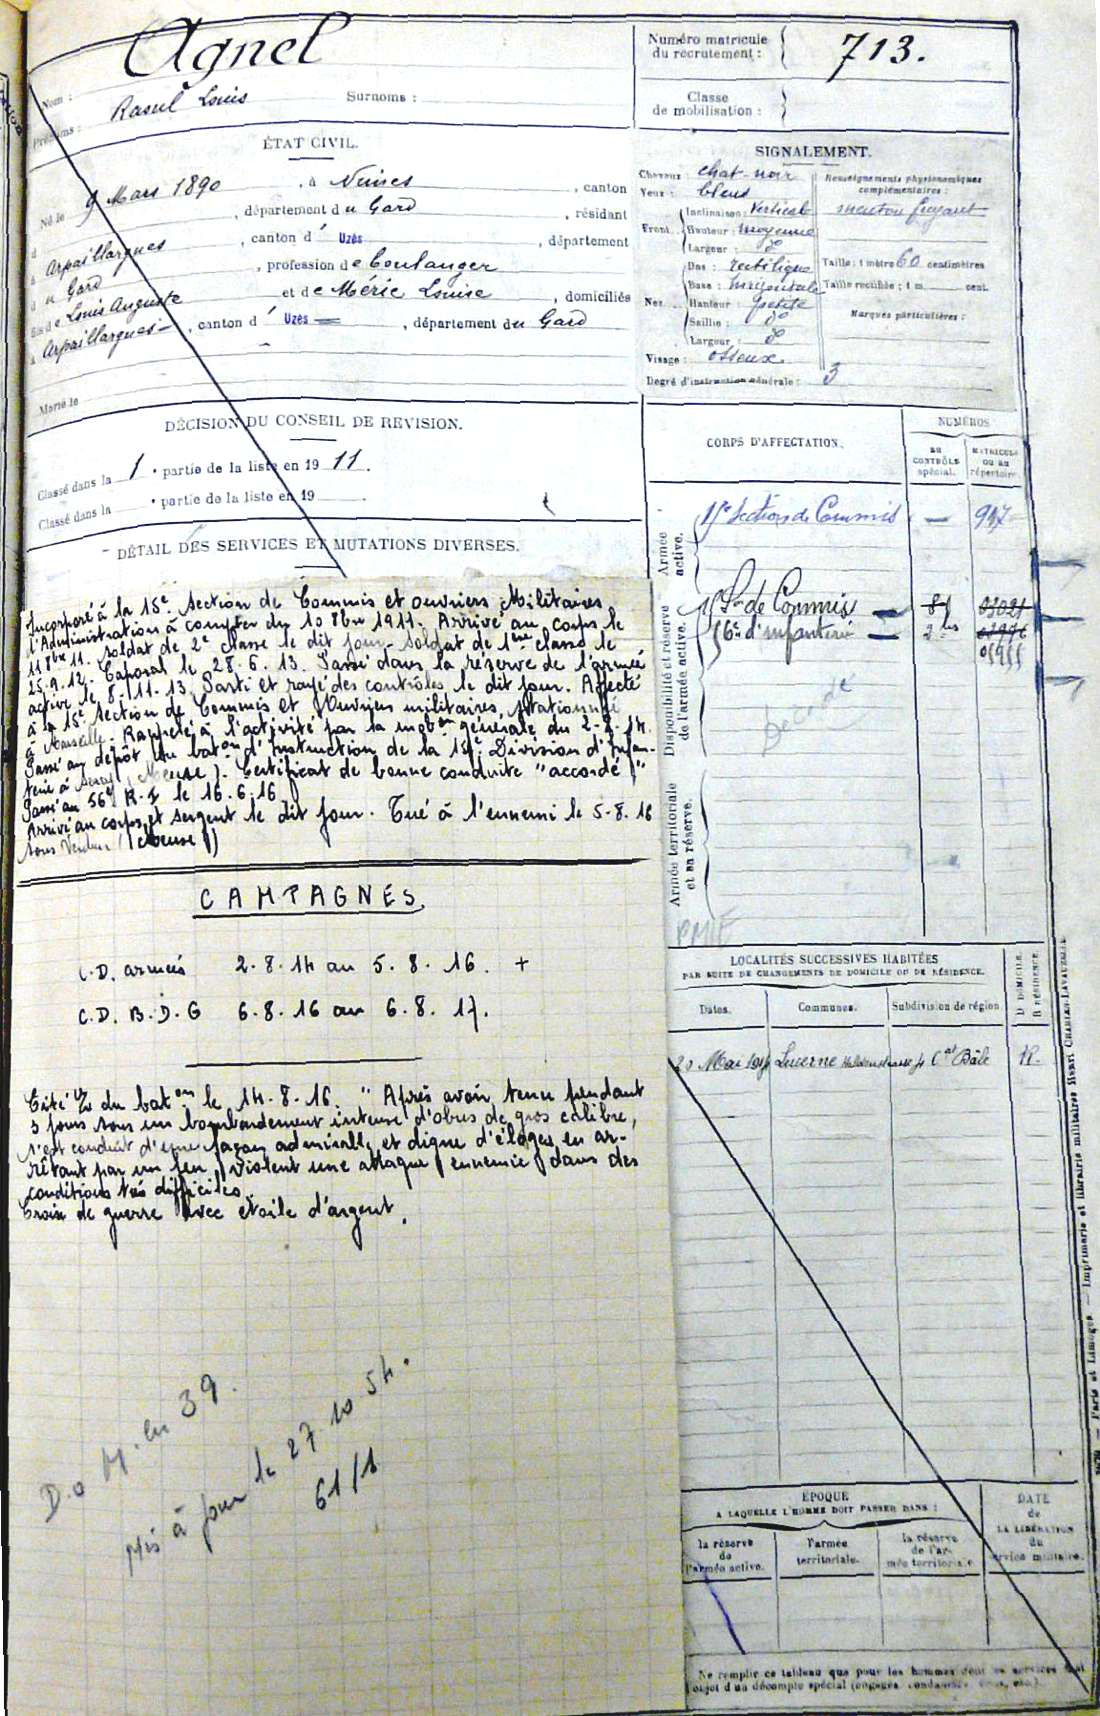 Agnel
Nom :
Raoul Louis Surnoms :
Prénoms :
Numéro matricule
du recrutement :
713.
Classe
de mobilisation :
ÉTAT CIVIL.
Né le 9 Mars 1890, à Nîmes, canton
d , département du Gard, résidant
à Arpaillargues, canton d' Uzès, département
du Gard, profession de boulanger
fils de Louis Auguste et de Méric Louise, domiciliés
à Arpaillargues, canton d' Uzès, département du Gard
Marié le
SIGNALEMENT.
Cheveux : chat-noir
Yeux : bleus
Front. Inclinaison : Vertical
Hauteur : moyenne
Largeur : d°
Nez. Dos : rectiligne
Base :
Hauteur : petite
Saillie : d°
Largeur : d°
Visage : osseux.
Degré d'instruction générale : 3
Renseignements physionomiques
complémentaires :
menton fuyant
Taille : 1 mètre 60 centimètres
Taille rectifiée : 1 m. cent.
Marques particulières :
DÉCISION DU CONSEIL DE REVISION.
Classé dans la 1 e partie de la liste en 1911.
Classé dans la e partie de la liste en 19 .
DÉTAIL DES SERVICES ET MUTATIONS DIVERSES.
Incorporé à la 15e Section de Commis et ouvriers Militaires
d'Administration à compter du 10 8bre 1911. Arrivé au corps le
11 8bre 11. soldat de 2e classe le dit jour. soldat de 1ère classe le
25.9.12. Caporal le 28.6.13. Passé dans la réserve de l'armée
active le 8.11.13. Parti et rayé des contrôles le dit jour. Affecté
à la 15e Section de Commis et Ouvriers militaires, stationnée
à Marseille. Rappelé à l'activité par la mobon générale du 2-8-14.
Passé au dépôt du baton d'Instruction de la 15e Division d'Infan-
terie à (Meuse). Certificat de bonne conduite "accordé"
Passé au 56e R.I le 16.6.16
Arrivé au corps et sergent le dit jour. Tué à l'ennemi le 5-8.16
sous Verdun (Meuse)
CAMPAGNES.
C.D. armées 2.8.14 au 5.8.16. +
C.D. B.D.G 6.8.16 au 6.8.17.
Cité du baton le 14.8.16. "Après avoir tenu pendant
3 jours sous un bombardement intense d'obus de gros calibre,
s'est conduit d'une façon admirable et digne d'éloges en ar-
rêtant par un feu violent une attaque ennemie dans des
conditions très difficiles
Croix de guerre avec étoile d'argent.
D.o M. en 39.
mis à jour le 27 10 54.
61/1
CORPS D'AFFECTATION.
NUMÉROS
AU
CONTRÔLE
spécial.
MATRICULE
OU AU
répertoire.
Armée
active.
15e Section de Commis — 937
Disponibilité et réserve
de l'armée active.
15e Son de Commis
56e d'infanterie
Décédé
Armée territoriale
et sa réserve.
LOCALITÉS SUCCESSIVES HABITÉES
PAR SUITE DE CHANGEMENTS DE DOMICILE OU DE RÉSIDENCE.
Dates. Communes. Subdivision de région
D DOMICILE.
R RÉSIDENCE.
20 Mai 1914 Lucerne Cat Bâle R.
ÉPOQUE
A LAQUELLE L'HOMME DOIT PASSER DANS :
la réserve
de
l'armée active.
l'armée
territoriale.
la réserve
de l'ar-
mée territoriale
DATE
de
LA LIBÉRATION
du
service militaire.
Ne remplir ce tableau que pour les hommes dont les services font
objet d'un décompte spécial (engagés, condamnés, etc.)
Paris et Limoges. — Imprimerie et librairie militaires Henri CHARLES-LAVAUZELLE